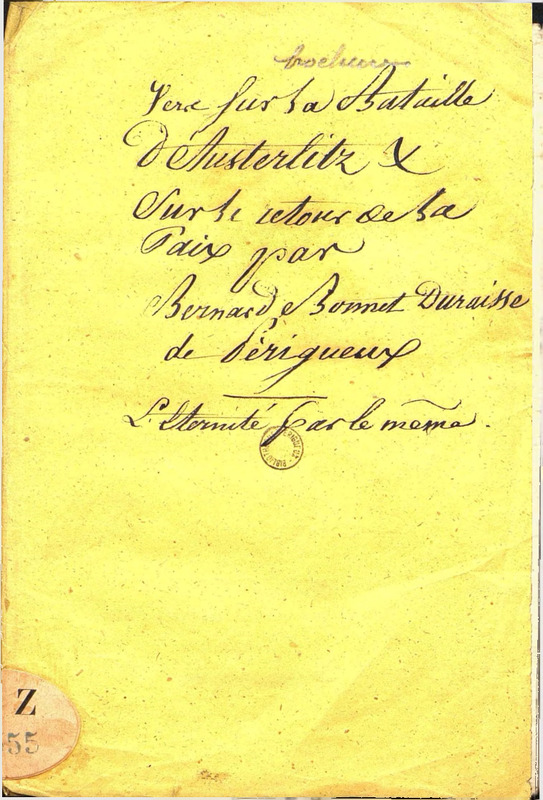 brochure
Vers sur la Bataille
d'Austerlitz &
Sur le retour de la
Paix par
Bernard de Bonnet Duraisse
de Périgueux
L'Eternité par le même.
Z
55